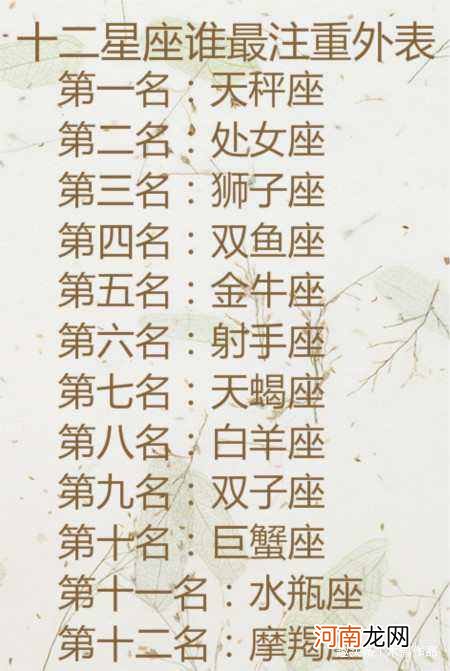 十二星座谁最注重外表
第一名：天秤座
第二名：处女座
第三名：狮子座
第四名：双鱼座
第五名：金牛座
第六名：射手座
第七名：天蝎座
第八名：白羊座
第九名：双子座
第十名：巨蟹座
第十一名：水瓶座
第十二名：摩羯座
河南龙网